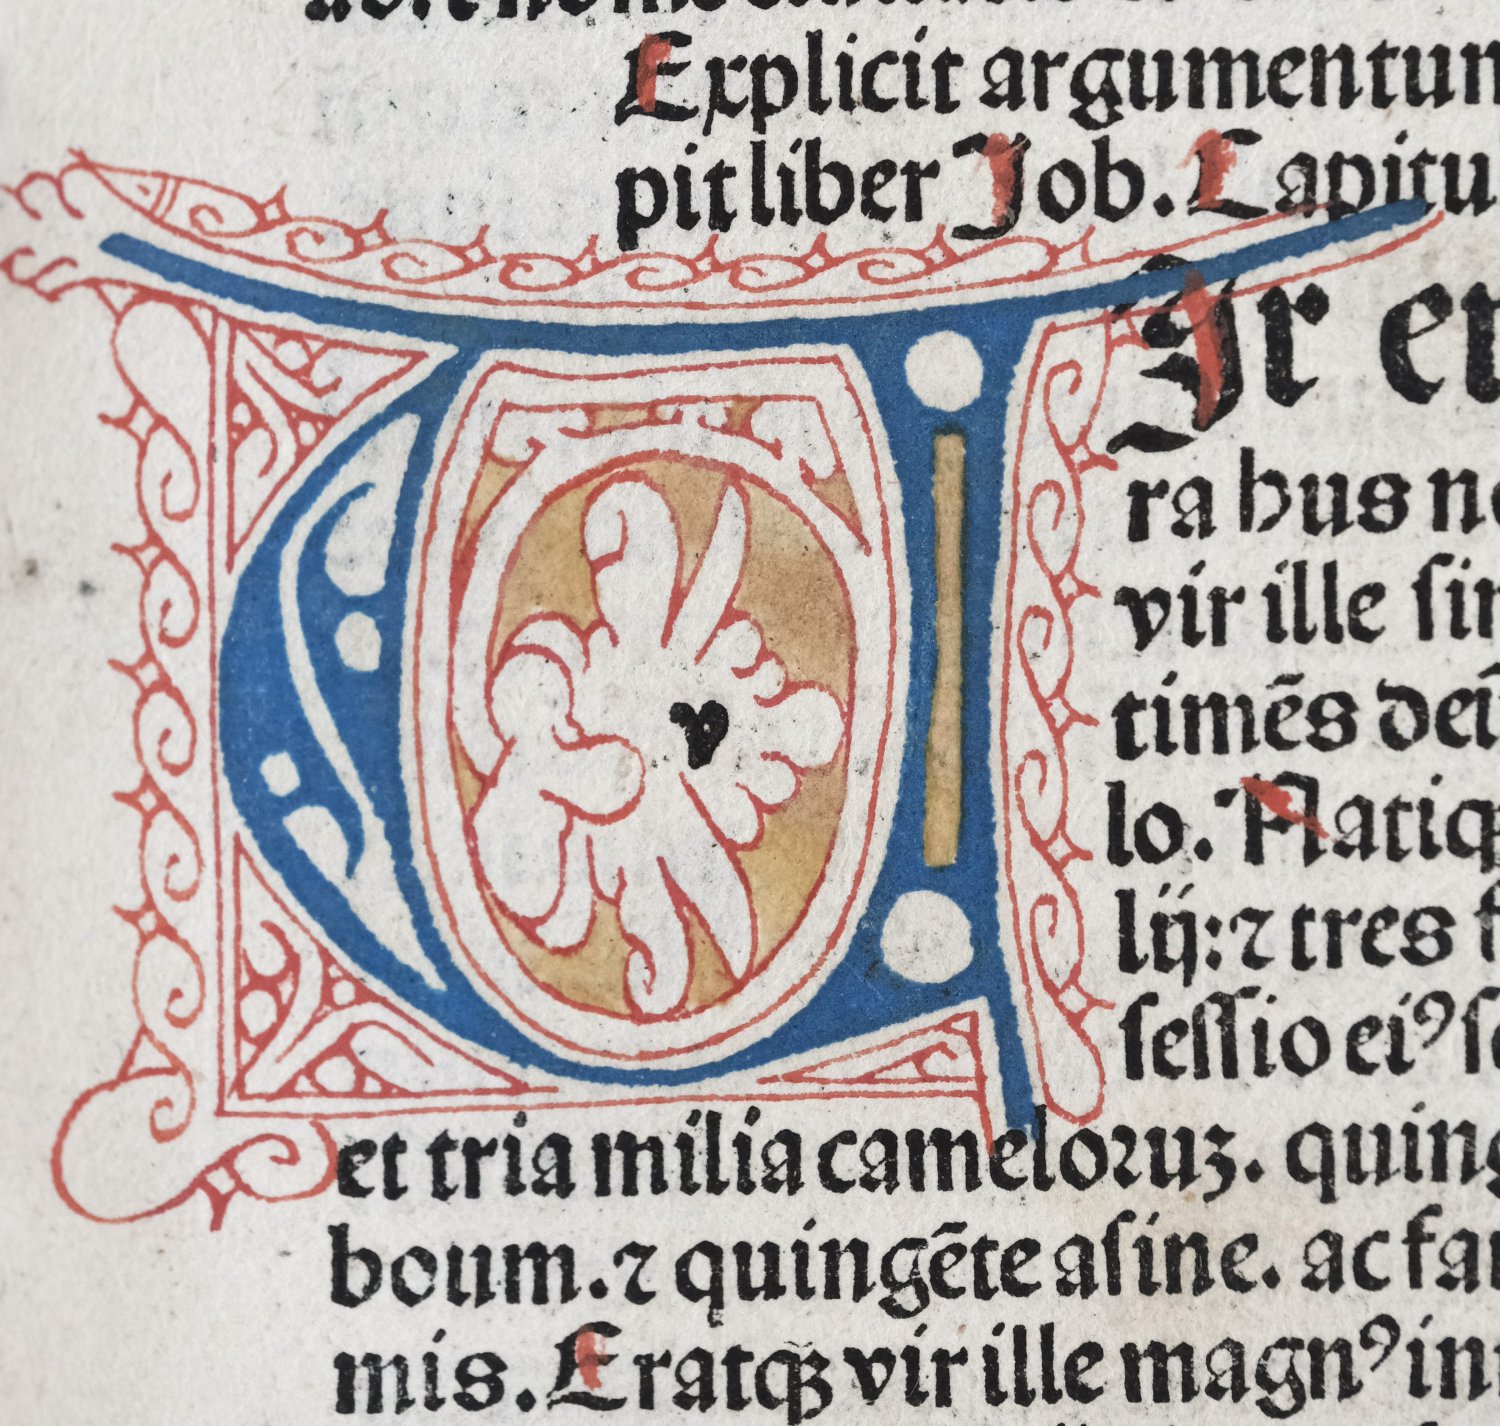 Explicit argumentum
pit liber Job. Capitu
v
Ir er
ra hus no
vir ille sim
timēs deū
lo. Natiq
lij: ⁊ tres f
sessio ei⁹ se
et tria milia cameloꝛuꝫ. quing
boum. ⁊ quingēte asine. ac fam
mis. Eratqꝫ vir ille magn⁹ int